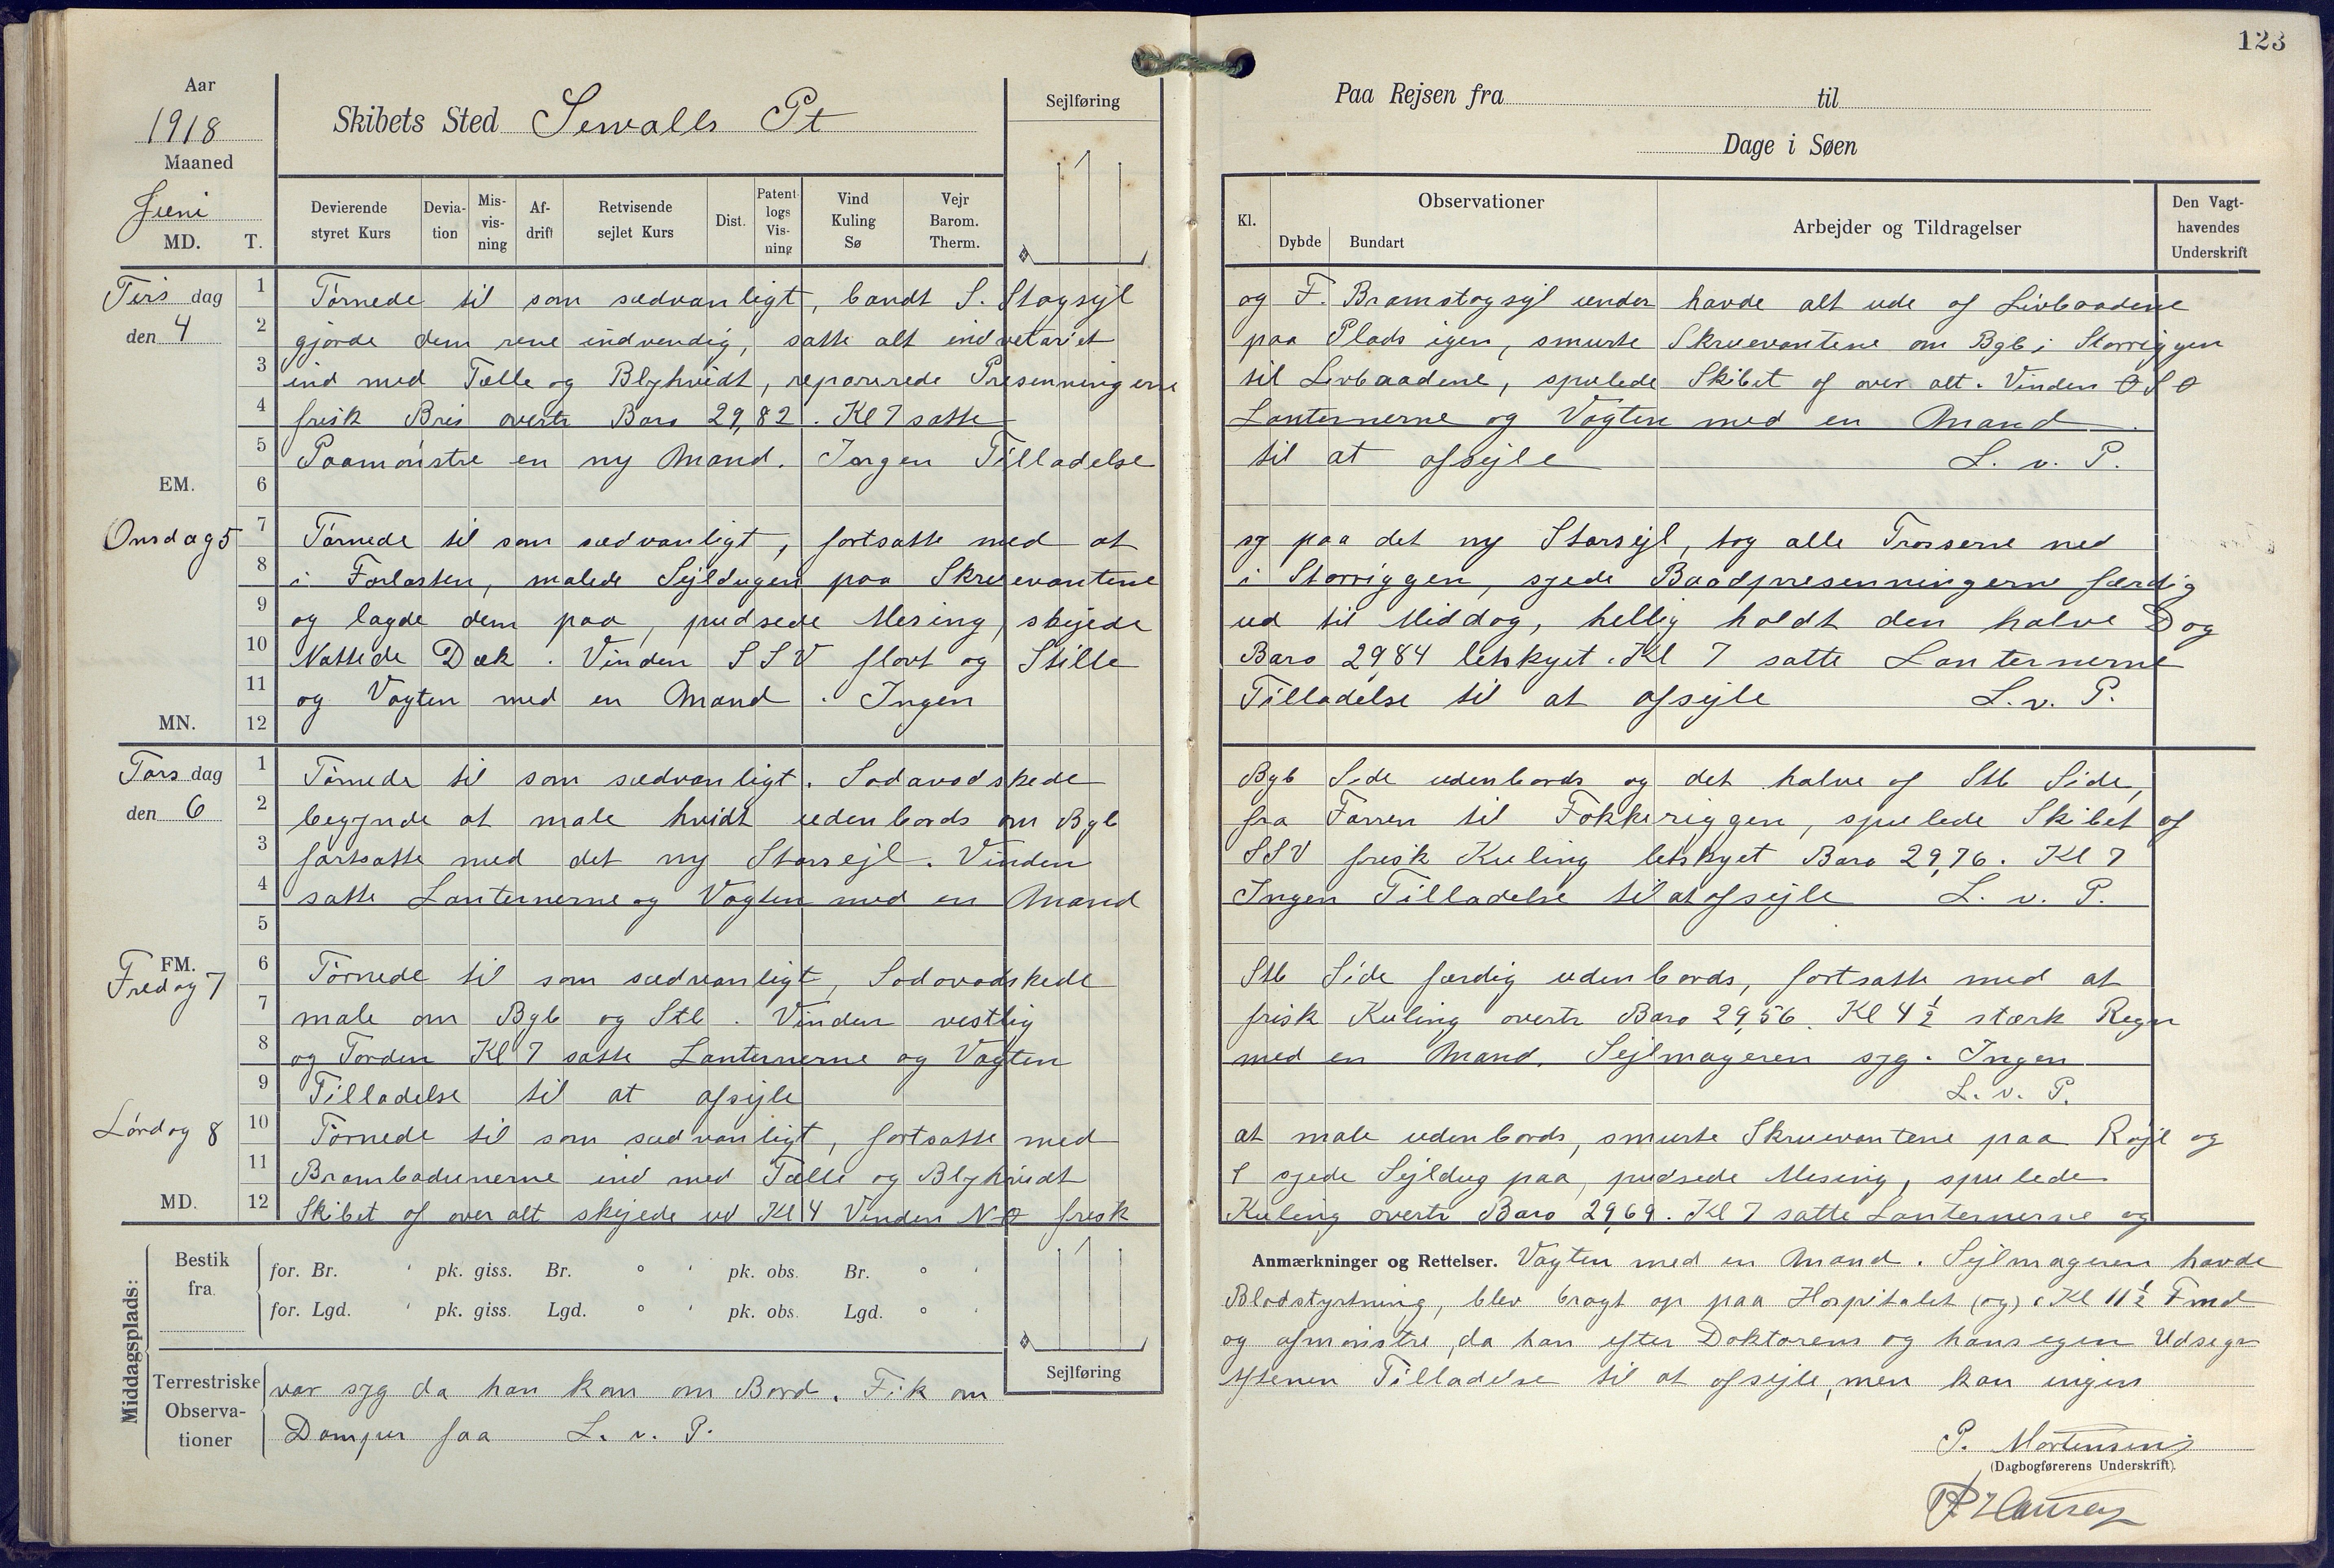 123
Aar
1918
Maaned
Juni
MD. T.
Skibets Sted Sewalls Pt
Sejlføring
Paa Rejsen fra til
Dage i Søen
Devierende styret Kurs
Deviation
Misvisning
Afdrift
Retvisende sejlet Kurs
Dist.
Patent logs Visning
Vind Kuling Sø
Vejr Barom. Therm.
Kl.
Observationer
Dybde Bundart
Arbejder og Tildragelser
Den Vagthavendes Underskrift
Tirs dag
den 4
1 2 3 4 5
EM. 6
Tørnede til som sædvanligt, bandt S. Stagsejl og F. Bramstagsejl under havde alt ude af Livbaadene
gjorde dem rene indvendig, satte alt indvetariet paa Plads igen, smurte Skruevantene om Bgb i Storriggen
ind med Tælle og Blyhvidt, reparerede Presenningerne til Livbaadene, spulede Skibet af over alt. Vinden ØSØ
frisk Bris overtr Baro 29,82. Kl 7 satte Lanternerne og Vagten med en Mand.
Paamønstre en ny Mand. Ingen Tilladelse til at afsejle L. v. P.
Onsdag 5
7 8 9 10 11
MN. 12
Tørnede til som sædvanligt, fortsatte med at sy paa det ny Storsejl, tog alle Trosserne ned
i Forlasten, malede Sejldugen paa Skruevantene i Storriggen, syede Baadpresenningerne færdig
og lagde dem paa, pudsede Mesing, skyede ud til Middag, hellig holdt den halve Dag
Nattede Dæk. Vinden SSV flovt og Stille Baro 29,84 letskyet. Kl 7 satte Lanternerne
og Vagten med en Mand. Ingen Tilladelse til at afsejle L. v. P.
Tors dag
den 6
1 2 3 4 5
FM. 6
Tørnede til som sædvanligt. Sodavadskede Bgb Side udenbords og det halve af Stb Side,
begynde at male hvidt udenbords om Bgb fra Farren til Fokkeriggen, spulede Skibet af
fortsatte med det ny Storsejl. Vinden SSV frisk Kuling letskyet Baro 29,76. Kl 7
satte Lanternerne og Vagten med en Mand Ingen Tilladelse til at afsejle L. v. P.
Fredag 7
7 8 9 10 11
Tørnede til som sædvanligt, Sodavadskede Stb Side færdig udenbords, fortsatte med at
male om Bgb og Stb. Vinden vestlig frisk Kuling overtr Baro 29,56. Kl 4½ stærk Regn
og Torden Kl 7 satte Lanternerne og Vagten med en Mand. Sejlmageren syg. Ingen
Tilladelse til at afsejle L. v. P.
Lørdag 8
MD. 12
Tørnede til som sædvanligt, fortsatte med at male udenbords, smurte Skruevantene paa Røjl og
Brambadunerne ind med Tælle og Blyhvidt syede Sejldug paa, pudsede Mesing, spulede
Skibet af over alt skyede ud Kl 4 Vinden NØ frisk Kuling overtr Baro 29,69. Kl 7 satte Lanternerne og
Anmærkninger og Rettelser. Vagten med en Mand. Sejlmageren havde
Blodstyrtning, blev bragt op paa Hospitalet (og) Kl 11½ Fmd
og afmønstre, da han efter Doktorens og hans egen Udsagn
var syg da han kom om Bord. Fik om Aftenen Tilladelse til at afsejle, men kan ingen
Damper faa L. v. P.
Middagsplads:
Bestik fra
for. Br. ' pk. giss. Br. ° ' pk. obs. Br. ° '
for. Lgd. ' pk. giss. Lgd. ° ' pk. obs. Lgd. ° '
Terrestriske Observationer
Sejlføring
P. Mortensen
(Dagbogførerens Underskrift).
Hansen